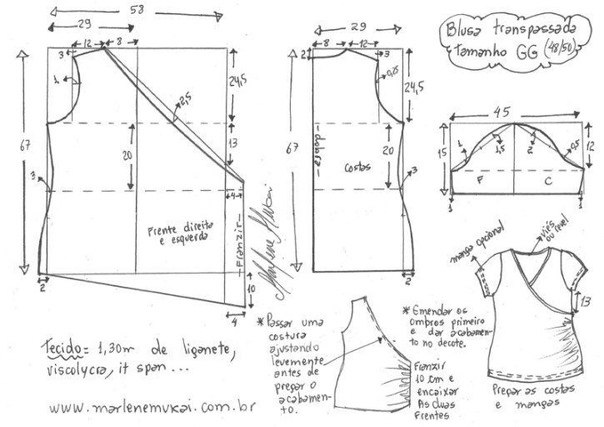 53
29
12
8
3
1
24,5
2,5
67
20
13
3
4
Frente direita
e esquerda
Franzir
2
10
4
Marlene Mukai
29
8
12
2
3
0,5
24,5
67
dobra
20
costas
3
2
Blusa transpassada
tamanho GG (48/50)
45
15
12
1
1,5
2
0,5
F
C
1
1
manga opcional
viés
ou revel
13
Tecido = 1,30m de liganete,
viscolycra, it span ...
www.marlenemukai.com.br
* Passar uma
costura
ajustando
levemente
antes de
pregar o
acabamen-
to.
* Emendar os
ombros primeiro
e dar acabamen-
to no decote.
Franzir
10 cm e
encaixar
As duas
Frentes
Pregar as costas
e mangas